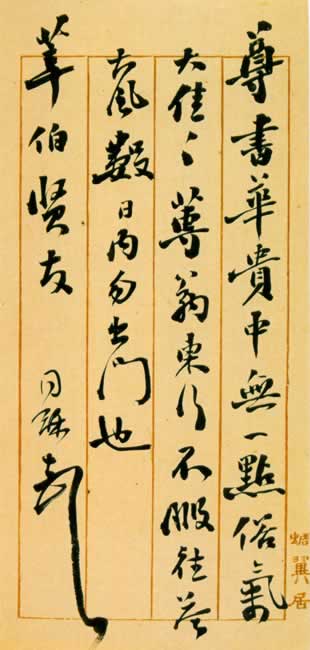 尊書華貴中無一點俗氣
大佳々蓴翁東行不暇往荅
大風數日内勿出門也
莘伯賢友
同龢
翼居